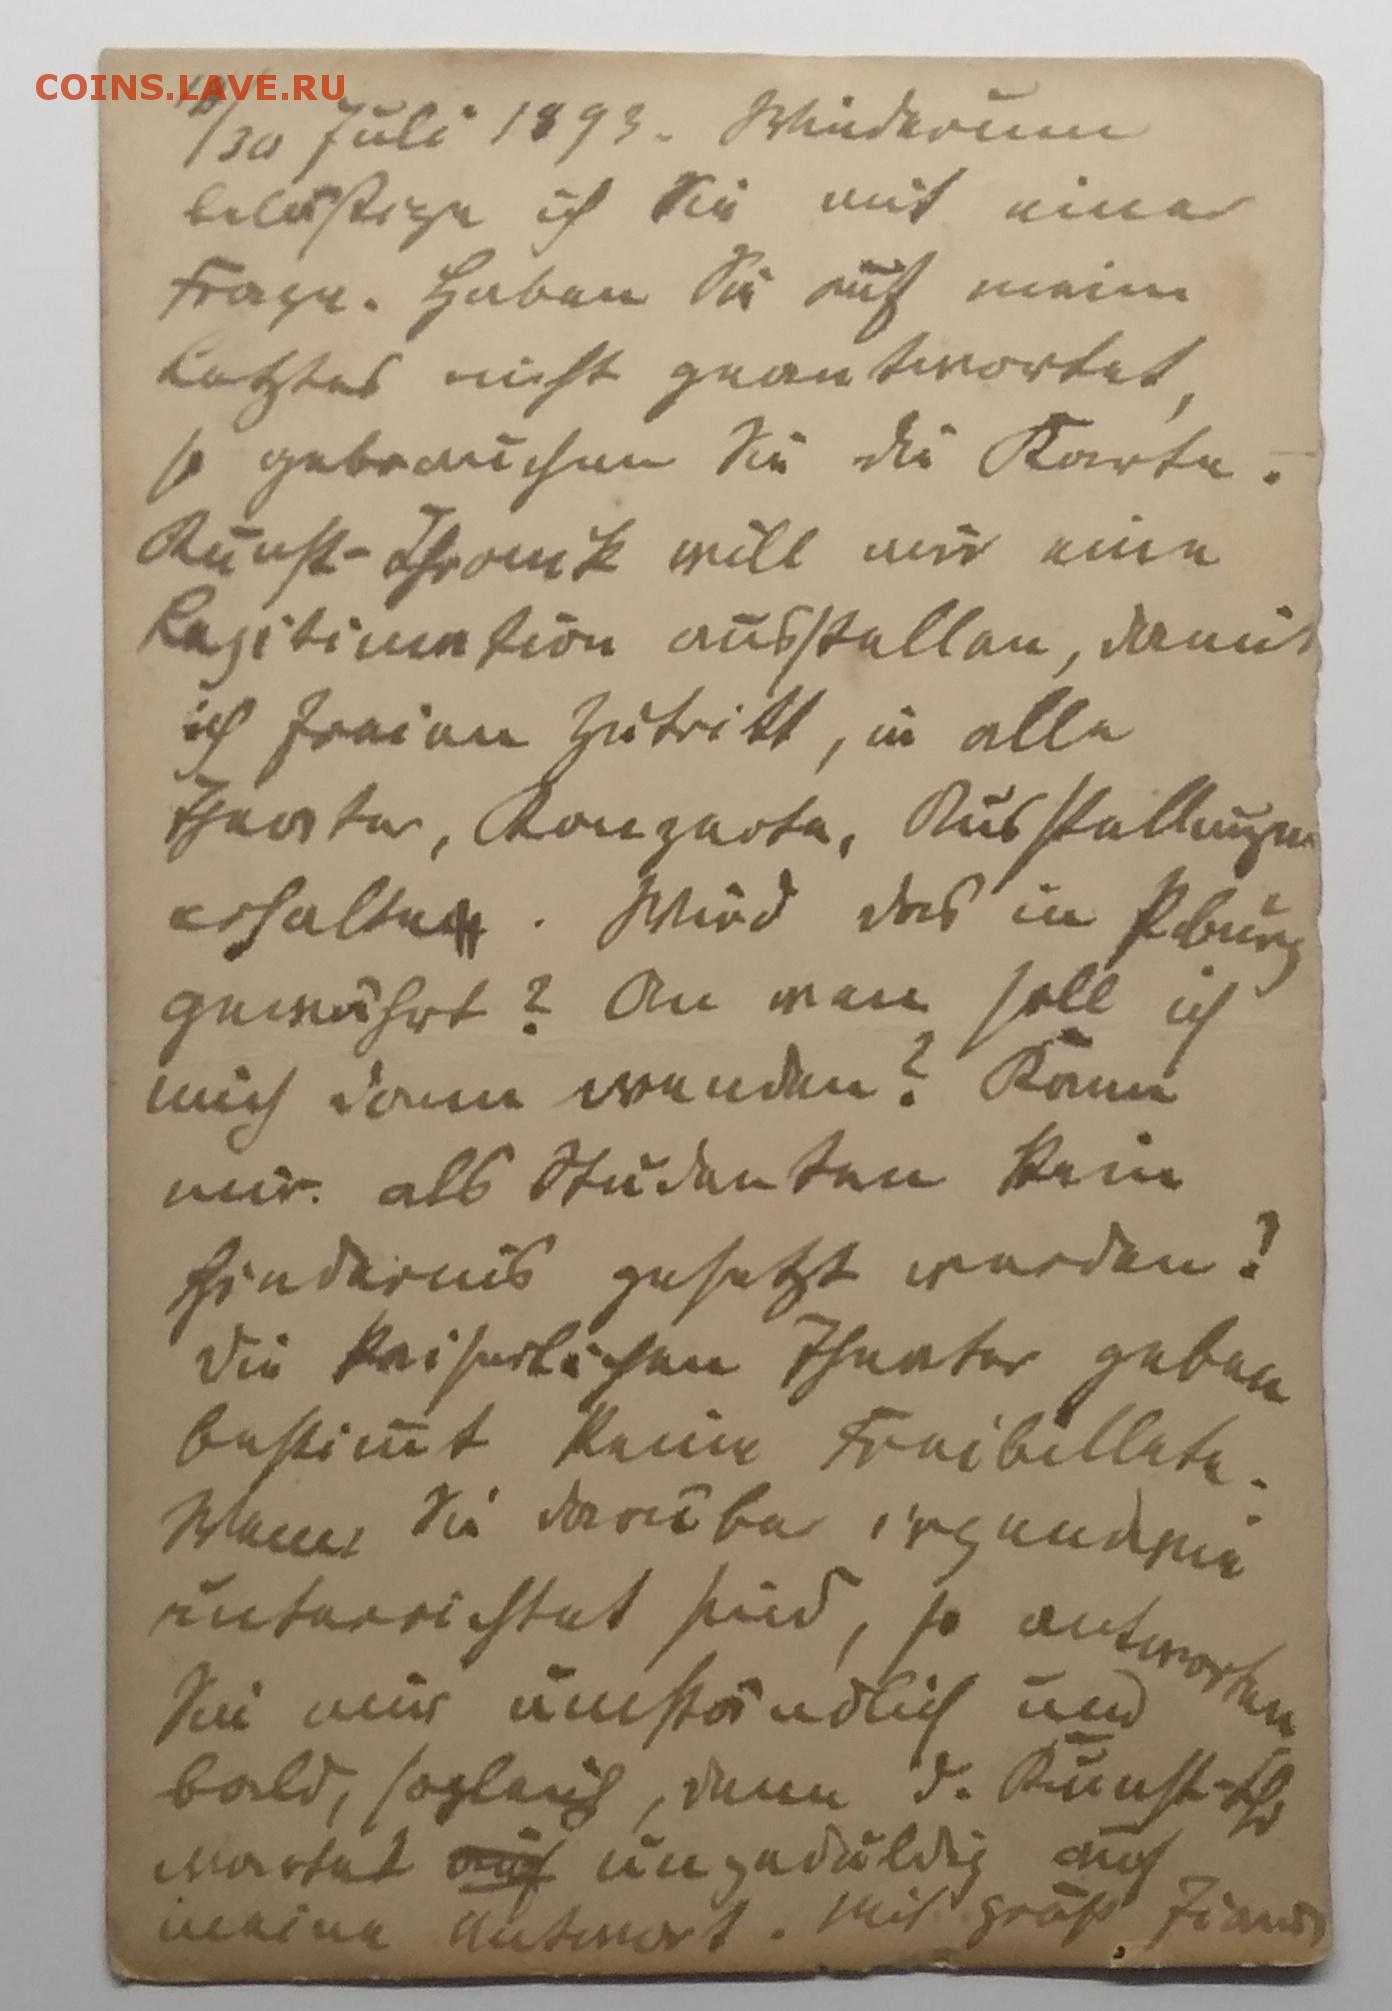 COINS.LAVE.RU
18/30 Juli 1893. Wiederum
belästige ich Sie mit einer
Frage. Haben Sie auf mein
Letztes nicht geantwortet,
so gebrauchen Sie die Karte.
Kunst-Chronik will mir eine
Legitimation ausstellen, damit
ich freien Zutritt, in alle
Theater, Konzerte, Ausstellungen
erhalte. Wird das in Pburg
gewährt? An wen soll ich
mich dann wenden? Kann
mir als Studenten kein
Hindernis gesetzt werden?
Die kaiserlichen Theater geben
bestimt keine Freibillete.
Wenn Sie darüber irgendwie
unterrichtet sind, so antworten
Sie mir umständlich und
bald, sogleich, denn d. Kunst-Chr
wartet auf ungeduldig auf
meine Antwort. Mit Gruß